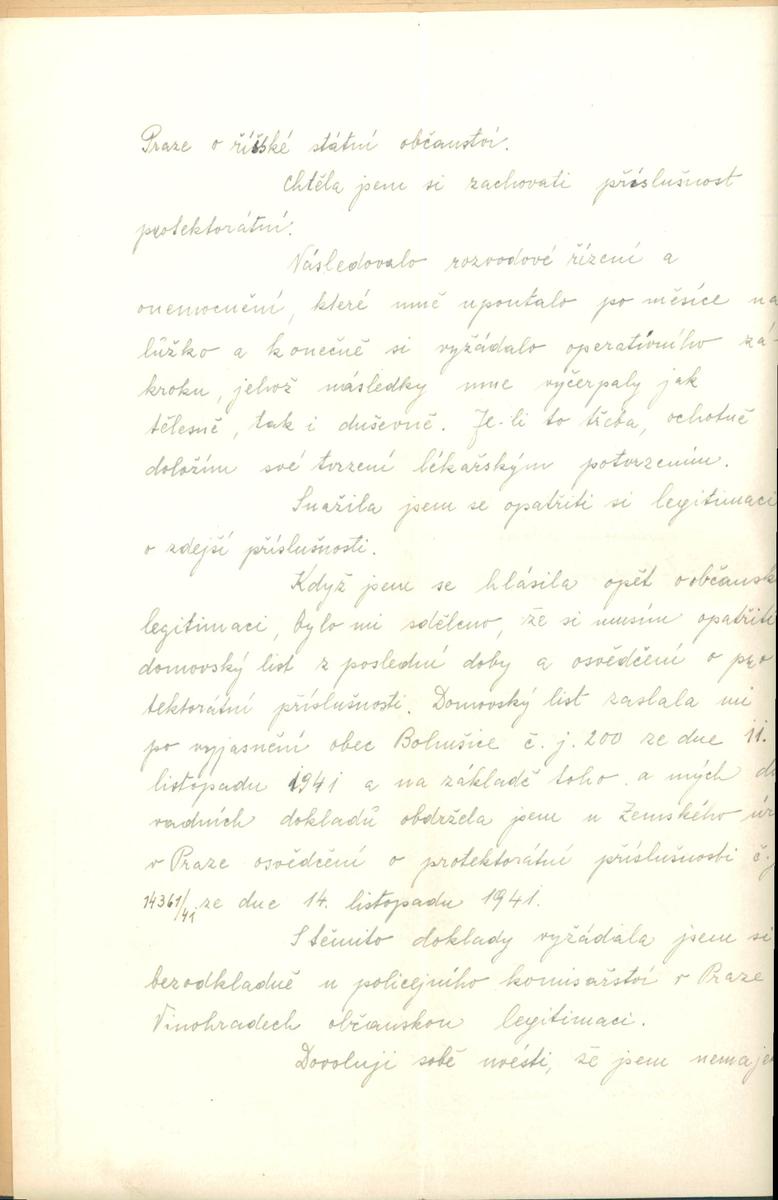 Praze o říšské státní občanství.
Chtěla jsem si zachovati příslušnost
protektorátní.
Následovalo rozvodové řízení a
onemocnění, které mně upoutalo po měsíce na
lůžko a konečně si vyžádalo operativního zá-
kroku, jehož následky mne vyčerpaly jak
tělesně, tak i duševně. Je-li to třeba, ochotně
doložím své tvrzení lékařským potvrzením.
Snažila jsem se opatřiti si legitimaci
o zdejší příslušnosti.
Když jsem se hlásila opět o občansk
legitimaci, bylo mi sděleno, že si musím opatřiti
domovský list z poslední doby a osvědčení o pro
tektorátní příslušnosti. Domovský list zaslala mi
po vyjasnění obec Bohušice č. j. 200 ze dne 11.
listopadu 1941 a na základě toho a mých do
vadních dokladů obdržela jsem u Zemského úř
v Praze osvědčení o protektorátní příslušnosti č.j
14361/41 ze dne 14. listopadu 1941.
S těmito doklady vyžádala jsem si
bezodkladně u policejního komisařství v Praze
Vinohradech občanskou legitimaci.
Dovoluji sobě uvésti, že jsem nemaje